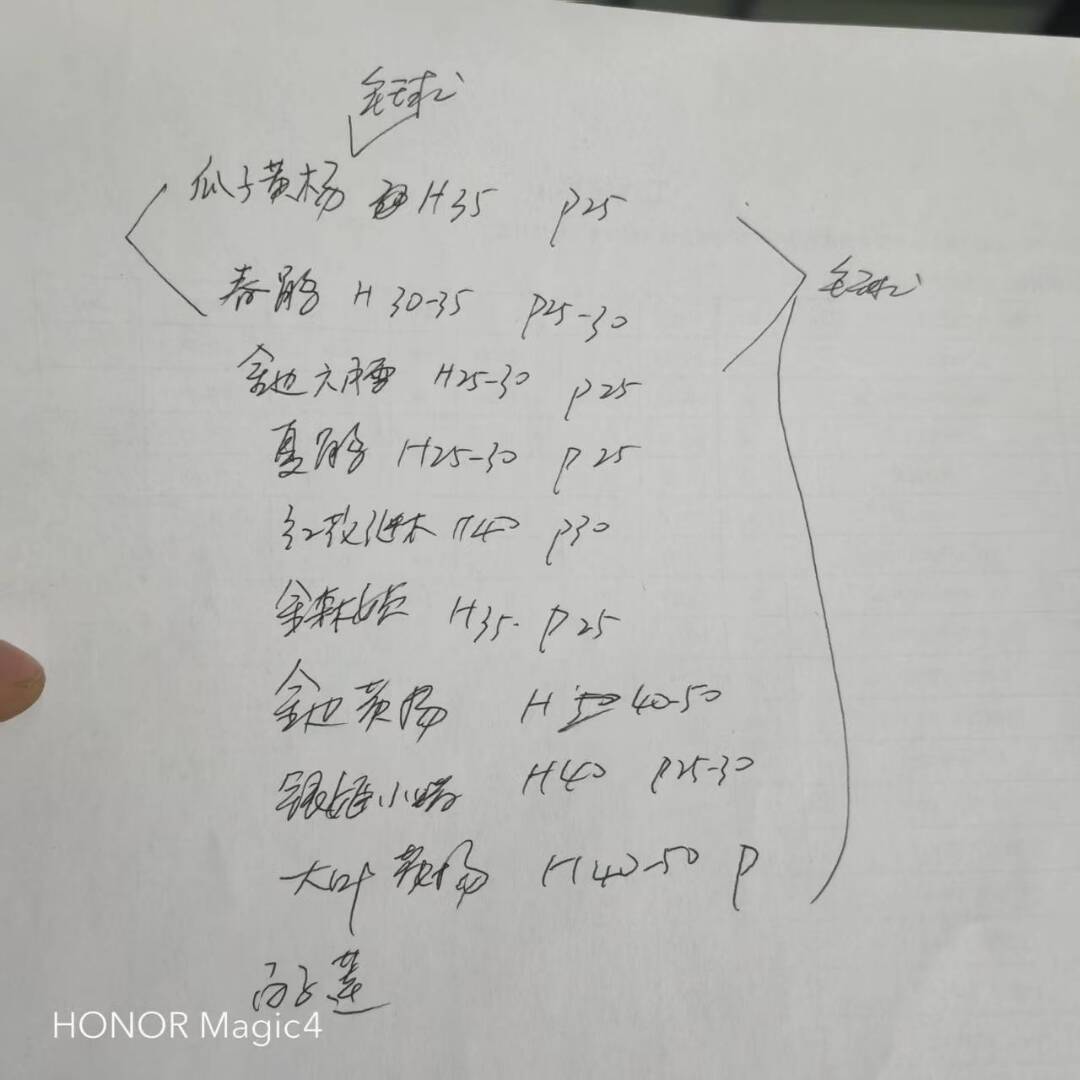 毛球
瓜子黄杨 H35 P25
春鹃 H 30-35 P25-30
毛球
金边六月雪 H25-30 P25
夏鹃 H25-30 P25
红花继木 H40 P30
金森女贞 H35. P25
金边黄杨 H 40-50
银姬小蜡 H40 P25-30
大叶黄杨 H40-50 P
HONOR Magic4